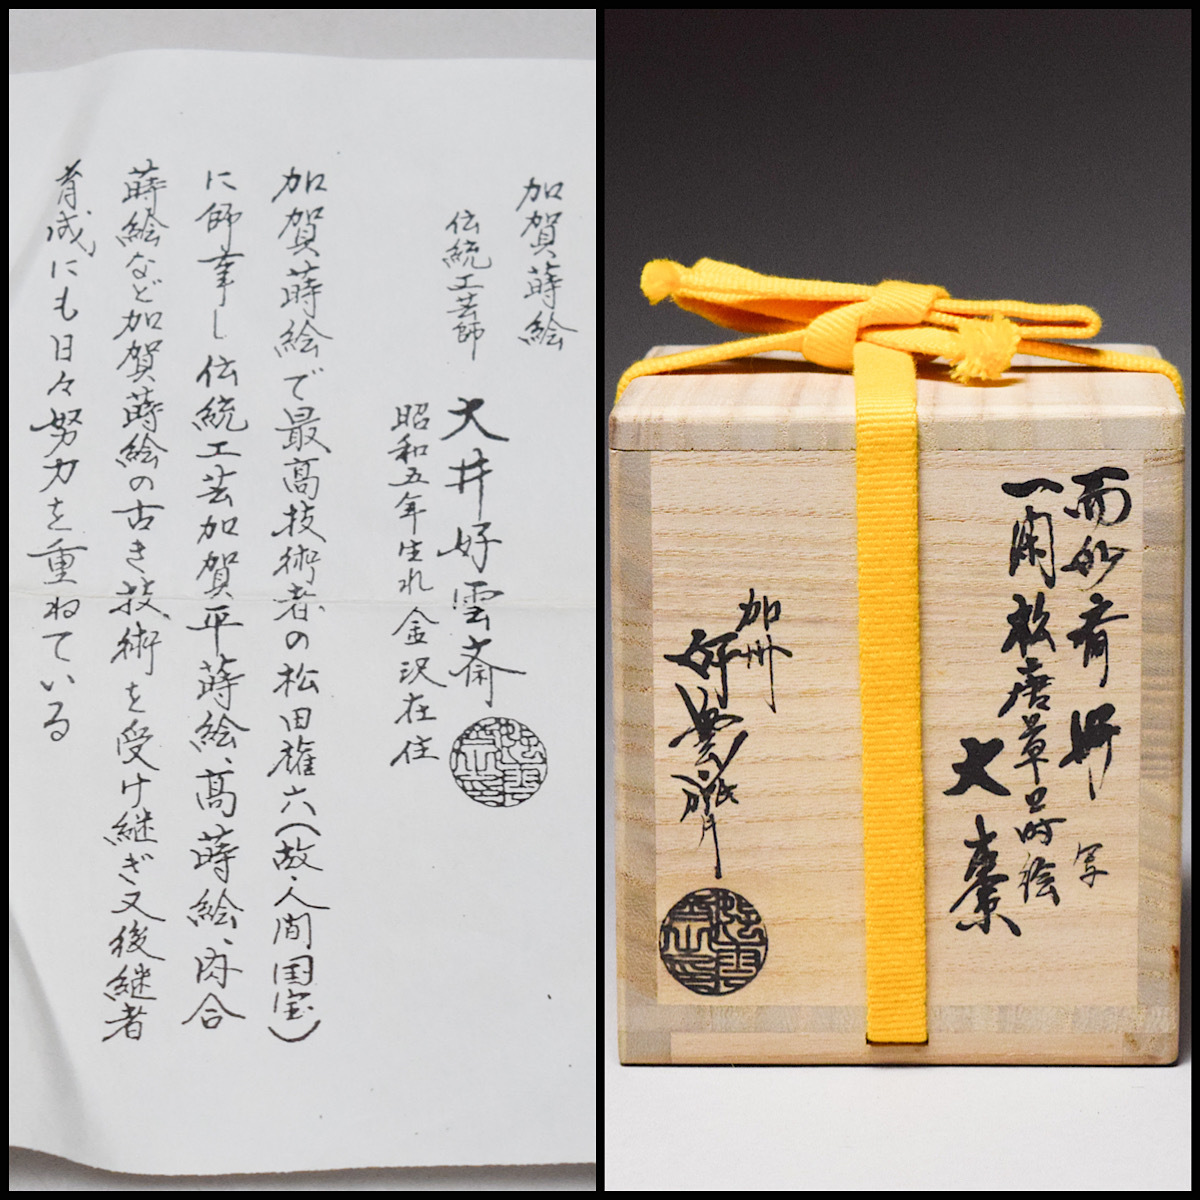 加賀蒔絵
伝統工芸師 大井好雲斎
昭和五年生れ 金沢在住
加賀蒔絵で最高技術者の松田権六(故・人間国宝)
に師事し伝統工芸加賀平蒔絵、高蒔絵、肉合
蒔絵など加賀蒔絵の古き技術を受け継ぎ又後継者
育成にも日々努力を重ねている
而妙斎好 写
一閑松唐草蒔絵
大棗
加州
好雲斎